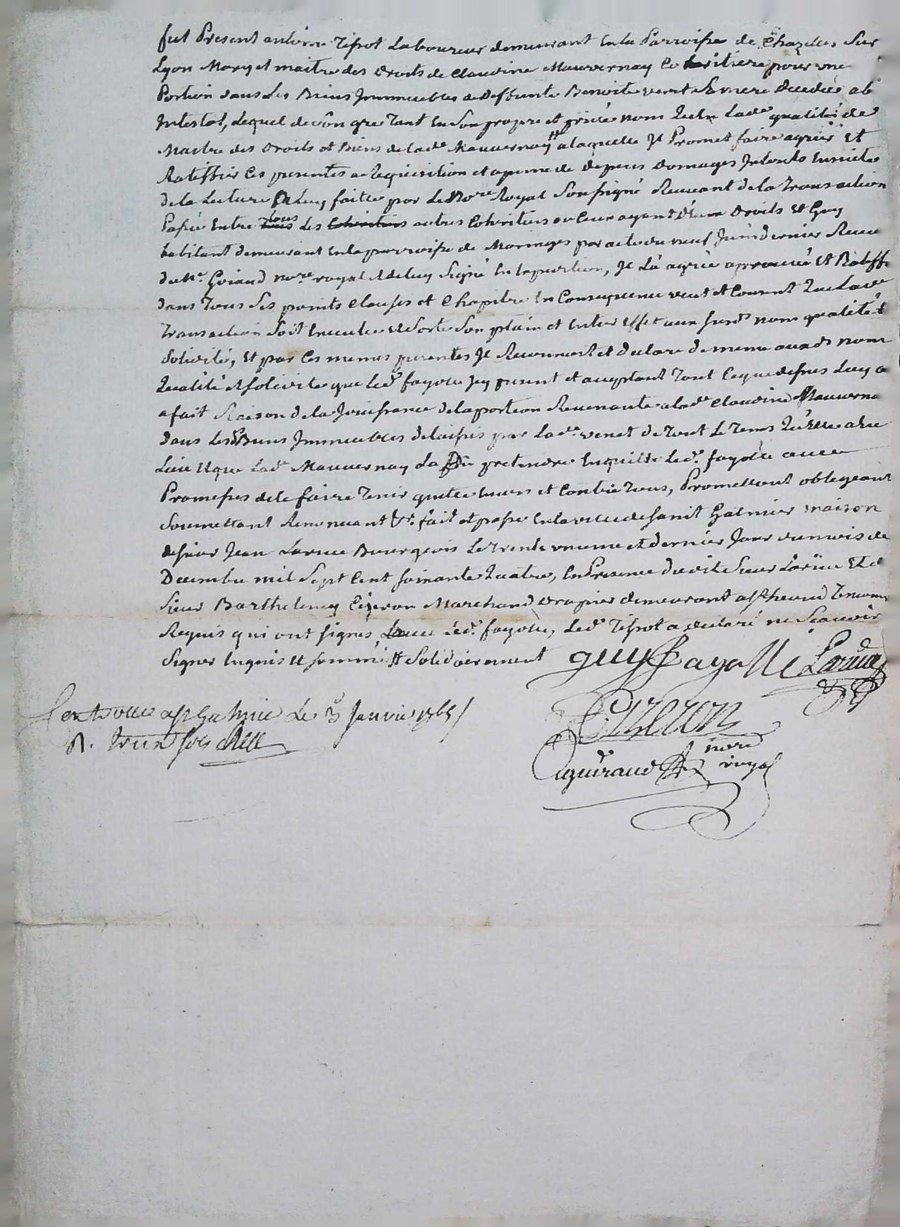 fut Present antoine Tissot Laboureur demeurant En la Parroisse de Chazelles Sur
Lyon Mary et maitre des Droits de Claudine Mauvernay Coheritiere pour une
Portion dans Les Biens Immeubles de Deffunte Benoite venet Sa mere Decedée ab
Intestat, Lequel de son gre Tant En Son propre et privé nom qu'En Lade qualité de
Maitre des Droits et Biens de lade Mauvernay a laquelle Je Promet faire agréer Et
Ratiffier Ces presentes a Requisition et a peine de depens Domages Interets Ensuite
de la Lecture a Luy faite par Le Nore Royal Soussigné Recevant de la Transaction
Passée Entre Tous Les autres Coheritiers ou Ceux ayant D'eux Droits Et Guy
habitant demeurant En la parroisse de Maringes par acte du neuf Juin dernier Receu
du Me Goiand nore royal Signé En la portion, Je L'a agréé aprouvé Et Ratiffié
dans Tous Ses points Clauses et Chapitre En Consequence veut et Consent Que Lade
Transaction Soit Executée et Sorte Son plain et Entier Effet aux Susds nom qualité et
Solidité, Et par Ces memes presentes Je Reconnoit et declare de meme auxds nom
Qualité et Solidité que Led. fayolle Icy present et acceptant Tout Ce que dessus Luy a
a fait Raison de la Jouissance de la portion Revenante a lade Claudine Mauvernay
dans Les Biens Immeubles delaissés par Lade venet de Tout Le Tems
Lieu Et que Lade Mauvernay La pretendre Enquitte Led. fayolle avec
Promesses de le faire Tenir quitte Envers et Contre Tous, Promettant obligeant
Soumettant Renonçant &ra fait et passé En la ville de Saint Galmier maison
de Sieur Jean Larue Bourgeois Le Trente uneme et dernier Jour du mois de
Decembre mil Sept Cent Soixante Quatre, En Presence dudit Sieur Larue Et de
Sieur Barthelemy Cizeron Marchand Drapier demeurant a St heand Temoins
Requis qui ont signes avec Led. fayolle, Led. Tissot a declaré ne Scavoir
Signer Enquis et Sommé # Solidairement guy fayolle Larue
Controllé a St Galmier Le 3 Janvier 1765
R. treize sols
Cizeron
Guiraud nore royal